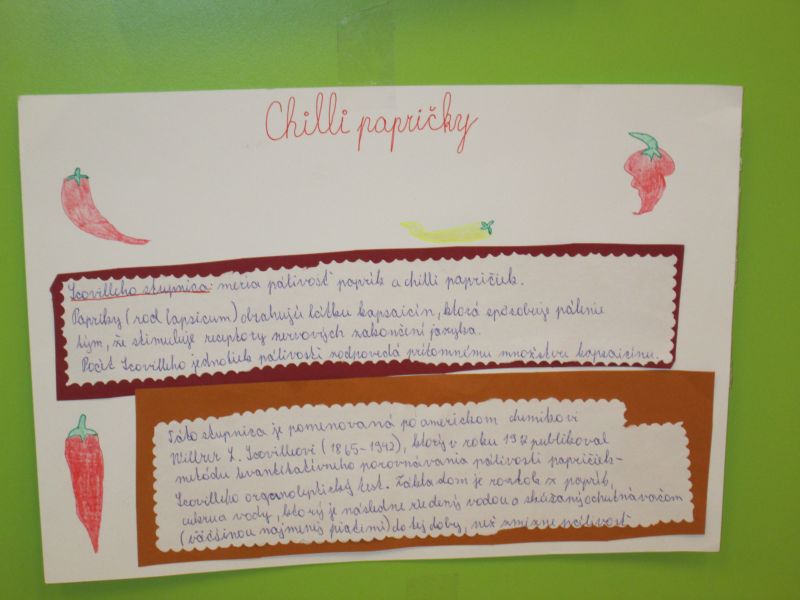 Chilli papričky
Scovilleho stupnica: meria pálivosť paprík a chilli papričiek.
Papriky (rod Capsicum) obsahujú látku kapsaicín, ktorá spôsobuje pálenie
tým, že stimuluje receptory nervových zakončení jazyka.
Počet Scovilleho jednotiek pálivosti zodpovedá prítomnému množstvu kapsaicínu.
Táto stupnica je pomenovaná po americkom chemikovi
Wilbur L. Scovilleovi (1865-1942), ktorý v roku 1912 publikoval
metódu kvantitatívneho porovnávania pálivosti papričiek-
Scovilleho organoleptický test. Základom je roztok z paprík,
cukru a vody, ktorý je následne riedený vodou a skúšaný ochutnávačom
(väčšinou najmenej piatimi) do tej doby, než zmizne pálivosť